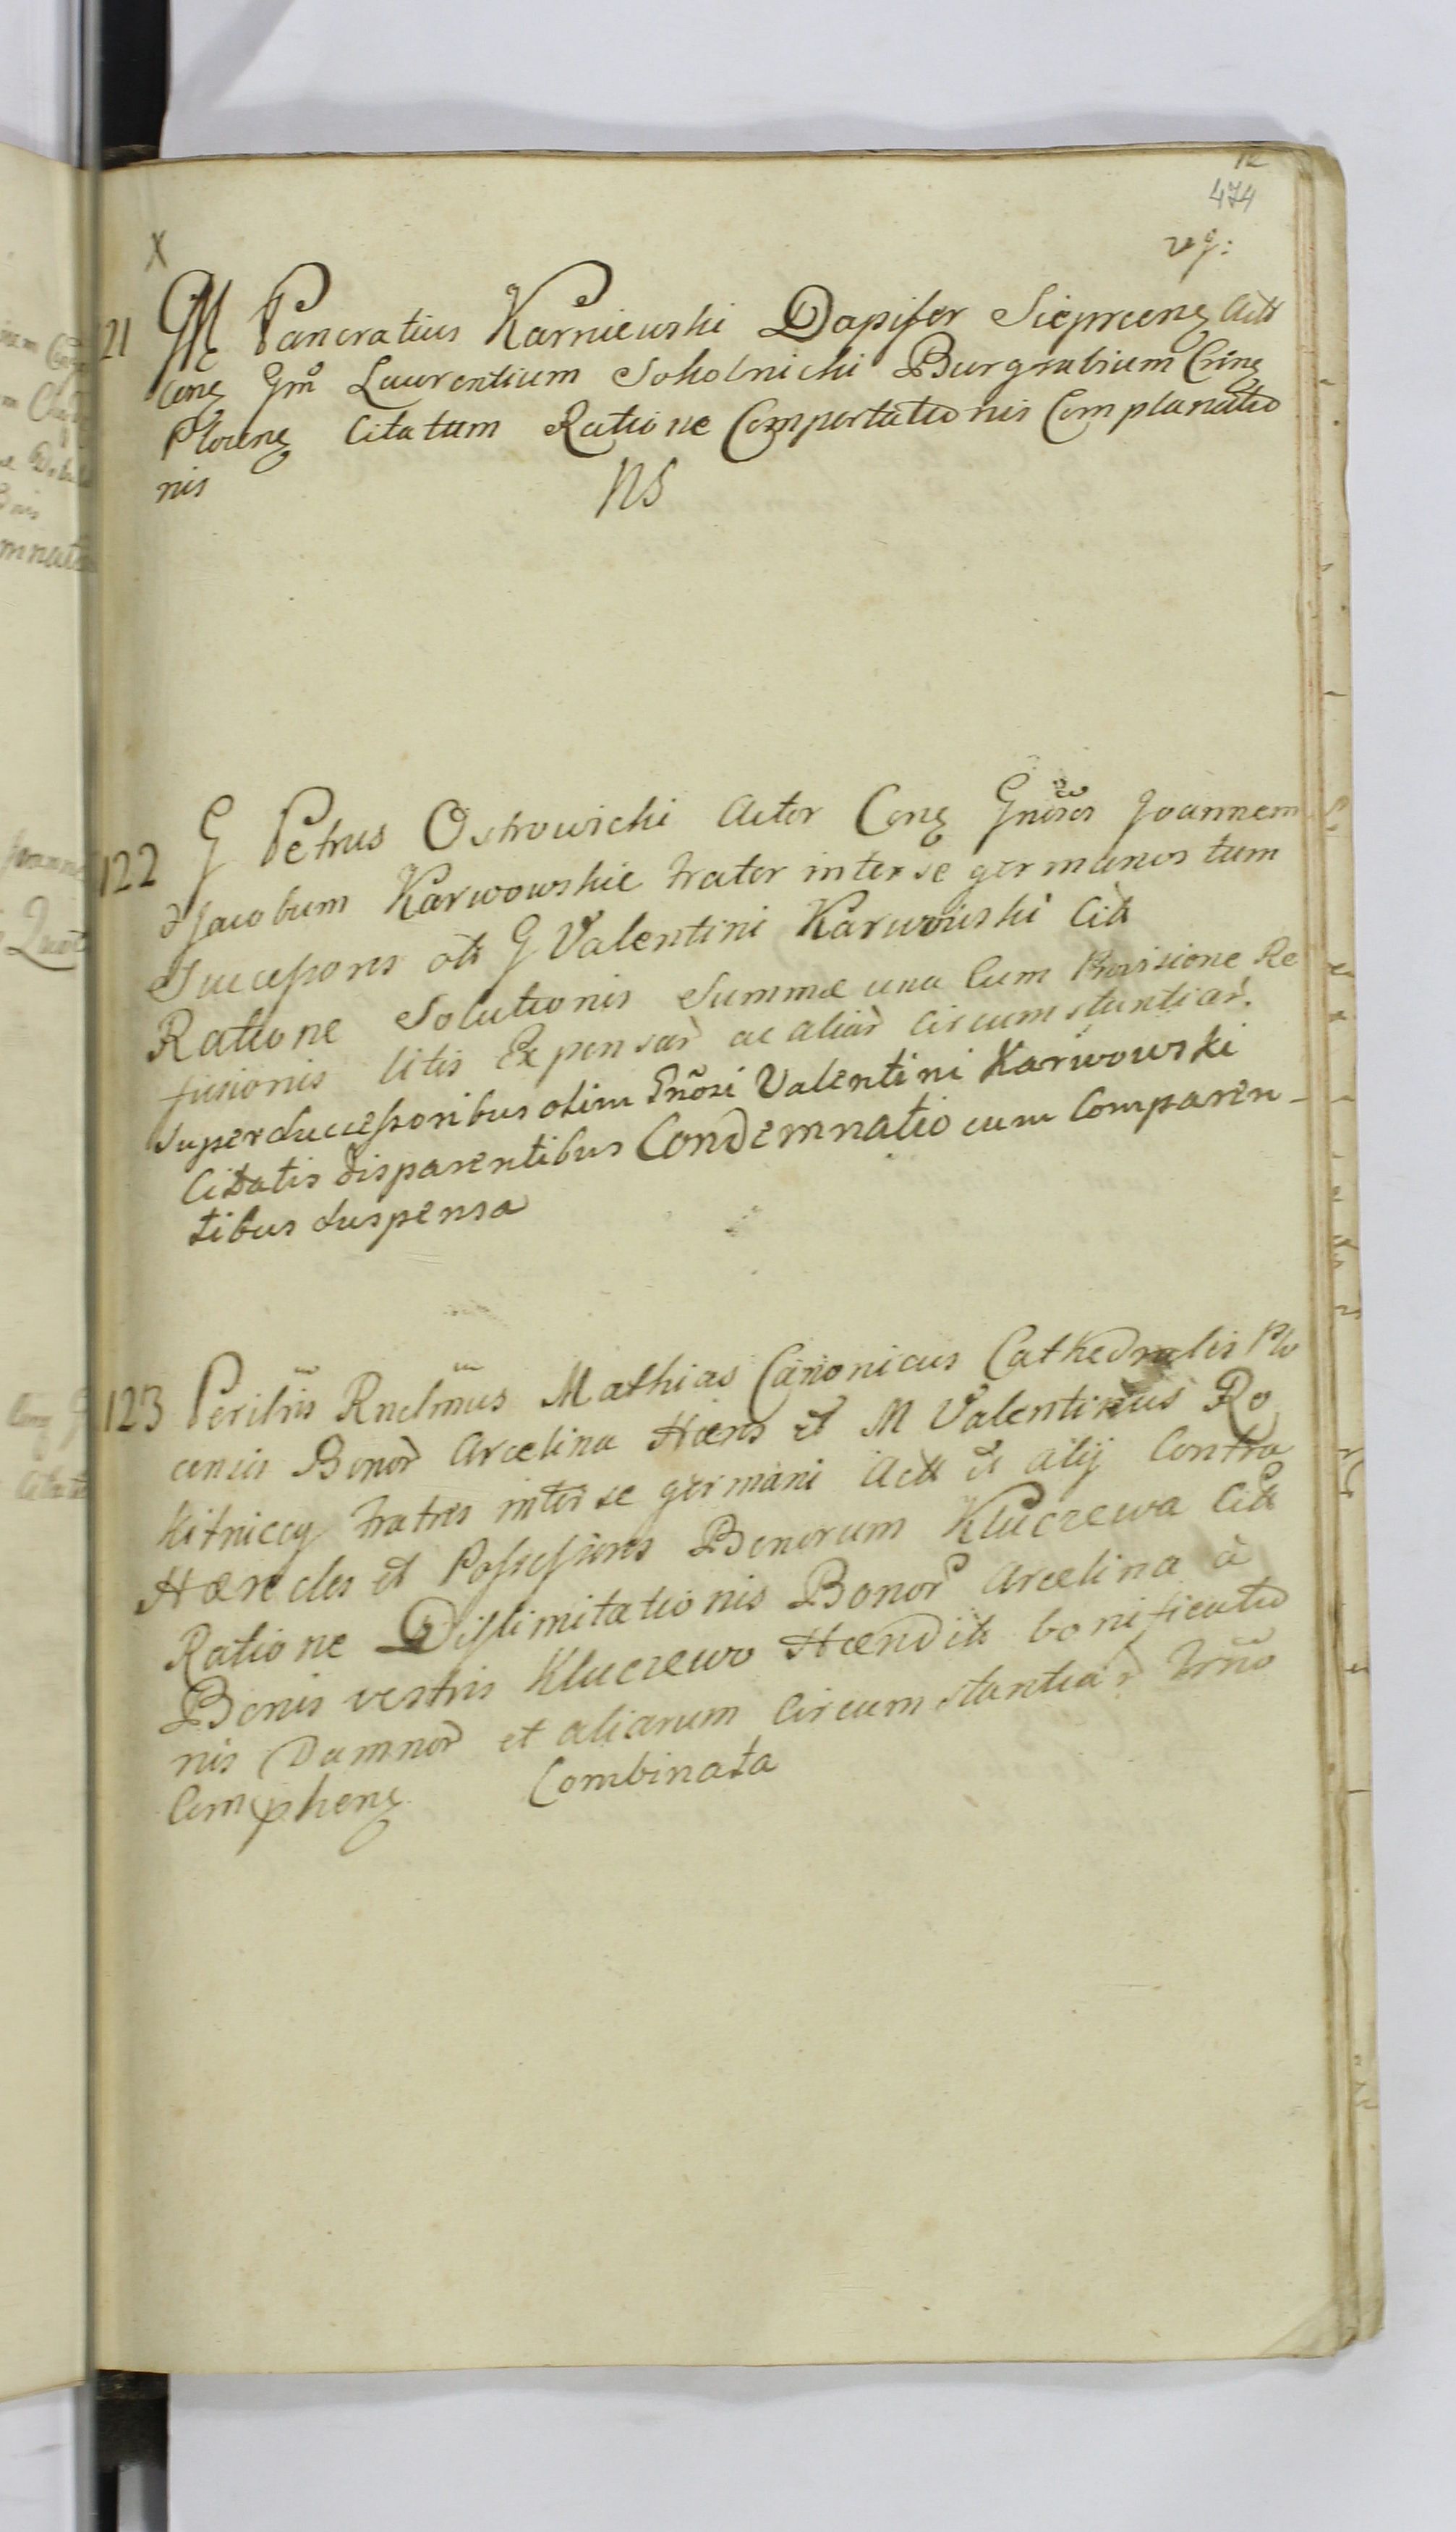 474
X
21 M Pancratius Karniewski Dapifer Sieprcens Actt
cong Gm̃ Laurentium Sokolnicki Burgrabium Crīng
Plocens Citatum Ratione Comportationis Complanatio
nis
NS
122 G Petrus Ostrowicki Actor Cong Gnõsos Joannem
& Jacobum Karwowskie frater inter se germanos tum
Successores olt G Valentini Karwowski Citt
Ratione Solutionis Summæ una Cum Provisione Re
fusionis litis Expensar̃ ac aliar̃ Circumstantiar̃.
super successoribus olim Gnõsi Valentini Karwowski
Citatis disparentibus Condemnatio cum Comparen-
tibus suspensa
123 Perillris Rndmus Mathias Canonicus Cathedralis Plo
censis Bonor̃ Arcelina Hæres et M Valentinus Ro
kitniccy fratres inter se germani Actt & alij Contra
Hæredes et Possessores Bonorum Kluczewa Citt
Ratione Dislimitationis Bonor̃ Arcelina à
Bonis vestris Kluczewo Hændit bonificatio
nis Damnor̃ et aliarum Circumstantiar̃ Trñio
Compheng Combinata